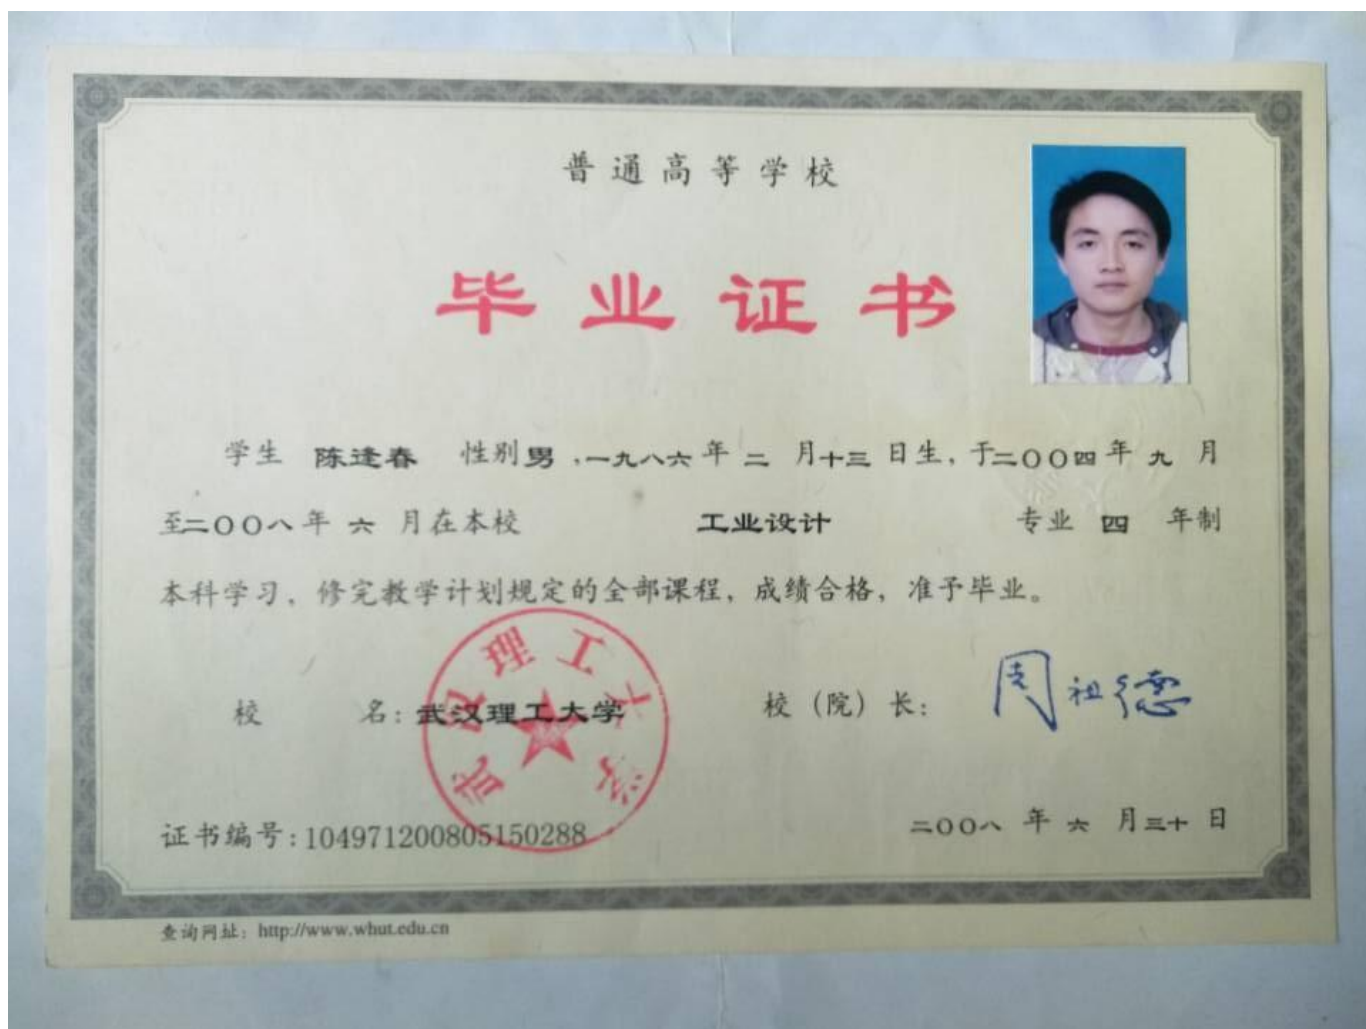 普通高等学校
毕业证书
学生 陈逢春 性别男,一九八六年二月十三日生,于二〇〇四年九月
至二〇〇八年六月在本校 工业设计 专业 四 年制
本科学习,修完教学计划规定的全部课程,成绩合格,准予毕业。
武汉理工大学
校 名:武汉理工大学 校(院)长:周祖德
证书编号:104971200805150288 二〇〇八年六月三十日
查询网址:http://www.whut.edu.cn